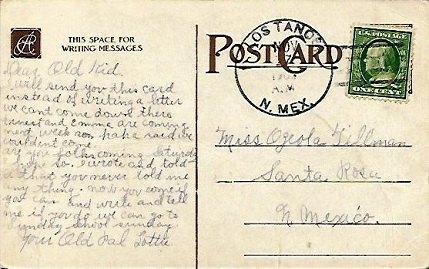 THIS SPACE FOR
WRITING MESSAGES
POST CARD
LOS TANOS
NOV
A.M.
N. MEX.
U.S. POSTAGE
ONE CENT
Dear Old Kid
I will send you this card
instead of writing a letter
we cant come down there
Emma are coming
next week son papa said
wouldent come
If you folks coming
so. I wrote and told
that you never told me
any thing. now you come if
you can and write and tell
me if you do we can go to
Sunday school sunday
Your Old Pal Lottie
Miss Ogeola Tillman
Santa Rosa
N Mexico.